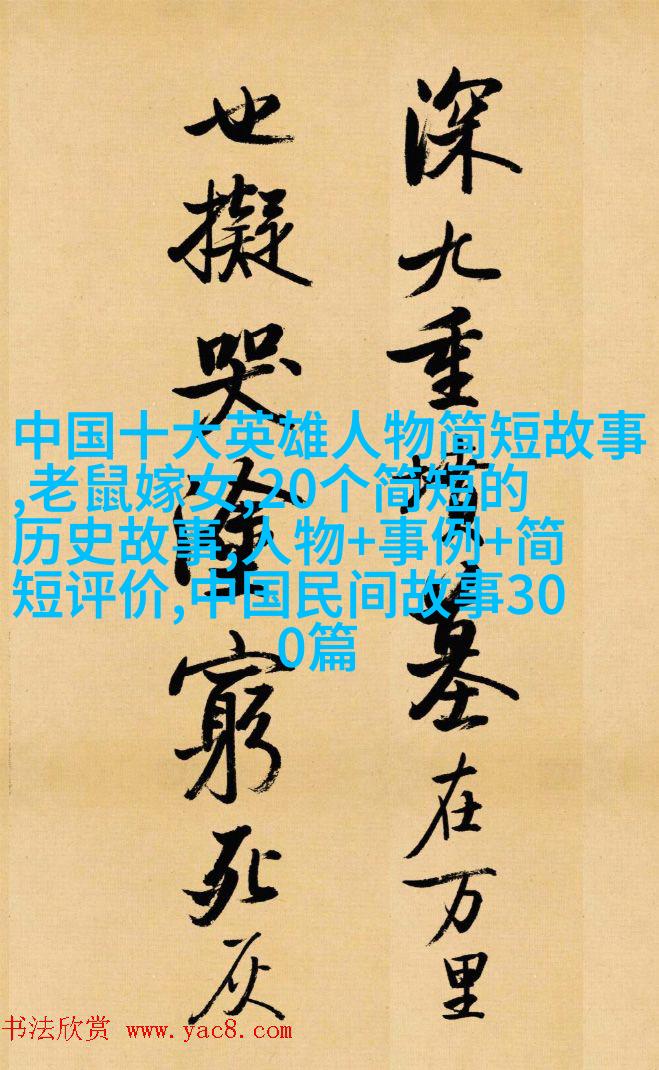 深九重墳墓在万里
也擬哭塗窮死灰
中国十大英雄人物简短故事
,老鼠嫁女,20个简短的
历史故事,人物+事例+简
短评价,中国民间故事30
0篇
书法欣赏 www.yac8.com